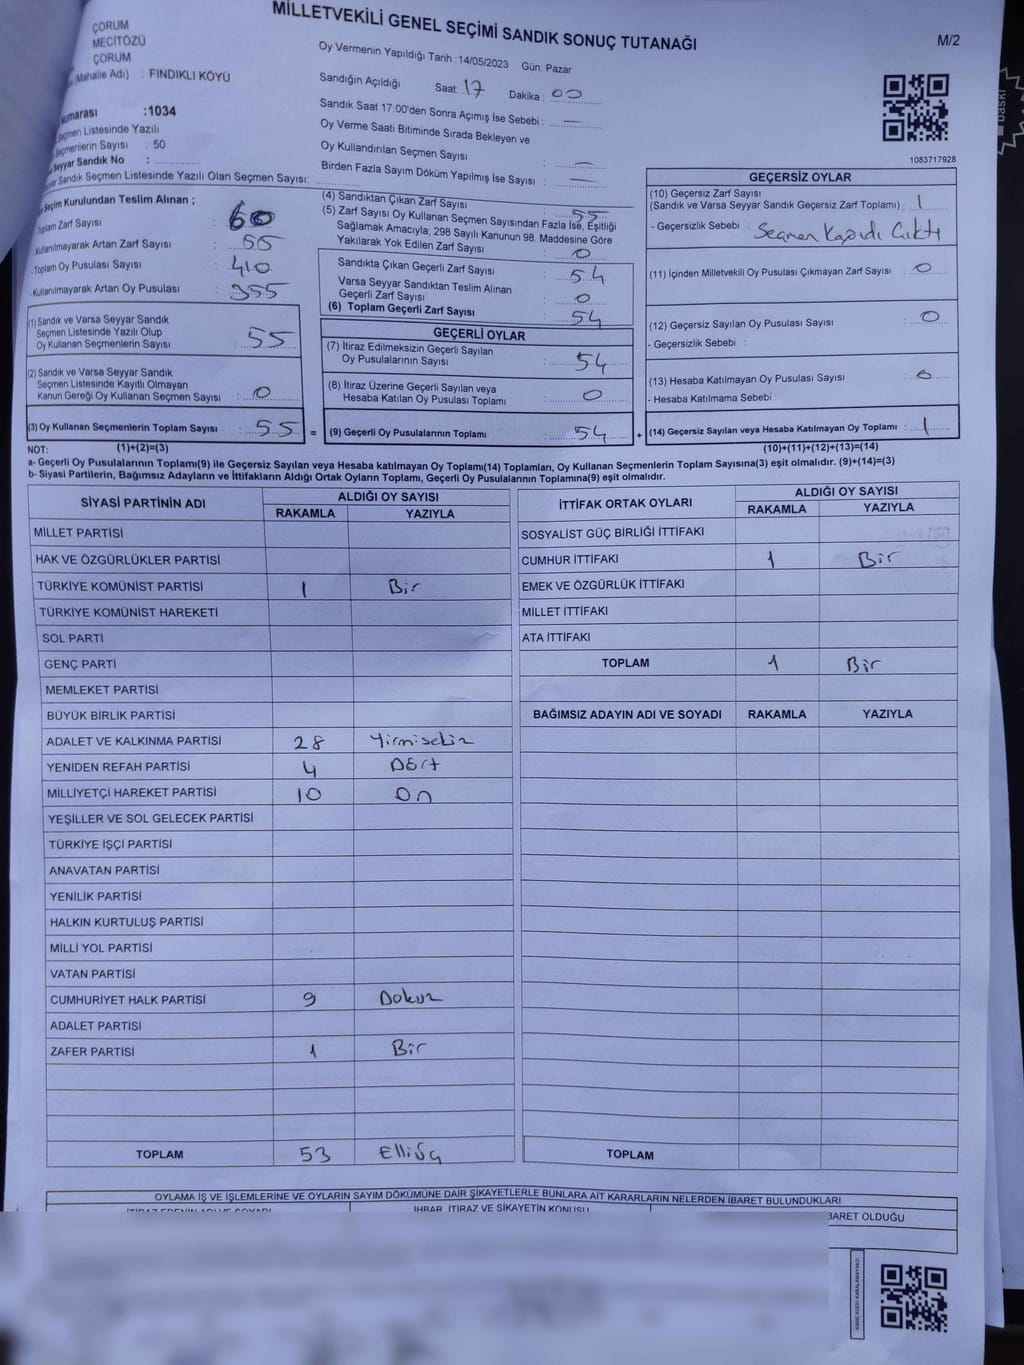 MİLLETVEKİLİ GENEL SEÇİMİ SANDIK SONUÇ TUTANAĞI
M/2
ÇORUM
MECİTÖZÜ
ÇORUM
(Mahalle Adı) : FINDIKLI KÖYÜ
:1034
Seçmen Listesinde Yazılı
Seçmenlerin Sayısı : 50
Seyyar Sandık No :
Seyyar Sandık Seçmen Listesinde Yazılı Olan Seçmen Sayısı:
Oy Vermenin Yapıldığı Tarih : 14/05/2023 Gün: Pazar
Sandığın Açıldığı Saat: 17 Dakika : 00
Sandık Saat 17:00'den Sonra Açımış İse Sebebi : —
Oy Verme Saati Bitiminde Sırada Bekleyen ve
Oy Kullandırılan Seçmen Sayısı : —
Birden Fazla Sayım Döküm Yapılmış İse Sayısı : —
1083717928
baskı
Seçim Kurulundan Teslim Alınan ;
Toplam Zarf Sayısı : 60
-Kullanılmayarak Artan Zarf Sayısı : 55
-Toplam Oy Pusulası Sayısı : 410
-Kullanılmayarak Artan Oy Pusulası : 355
(1) Sandık ve Varsa Seyyar Sandık
Seçmen Listesinde Yazılı Olup
Oy Kullanan Seçmenlerin Sayısı : 55
(2) Sandık ve Varsa Seyyar Sandık
Seçmen Listesinde Kayıtlı Olmayan
Kanun Gereği Oy Kullanan Seçmen Sayısı : 0
(3) Oy Kullanan Seçmenlerin Toplam Sayısı : 55 =
(4) Sandıktan Çıkan Zarf Sayısı : 55
(5) Zarf Sayısı Oy Kullanan Seçmen Sayısından Fazla İse, Eşitliği
Sağlamak Amacıyla; 298 Sayılı Kanunun 98. Maddesine Göre
Yakılarak Yok Edilen Zarf Sayısı : 0
Sandıkta Çıkan Geçerli Zarf Sayısı : 54
Varsa Seyyar Sandıktan Teslim Alınan
Geçerli Zarf Sayısı : 0
(6) Toplam Geçerli Zarf Sayısı : 54
GEÇERLİ OYLAR
(7) İtiraz Edilmeksizin Geçerli Sayılan
Oy Pusulalarının Sayısı : 54
(8) İtiraz Üzerine Geçerli Sayılan veya
Hesaba Katılan Oy Pusulası Toplamı : 0
(9) Geçerli Oy Pusulalarının Toplamı : 54 +
GEÇERSİZ OYLAR
(10) Geçersiz Zarf Sayısı
(Sandık ve Varsa Seyyar Sandık Geçersiz Zarf Toplamı) : 1
- Geçersizlik Sebebi : Seçmen Kağıdı Çıktı
(11) İçinden Milletvekili Oy Pusulası Çıkmayan Zarf Sayısı : 0
(12) Geçersiz Sayılan Oy Pusulası Sayısı : 0
- Geçersizlik Sebebi :
(13) Hesaba Katılmayan Oy Pusulası Sayısı : 0
- Hesaba Katılmama Sebebi :
(14) Geçersiz Sayılan veya Hesaba Katılmayan Oy Toplamı : 1
NOT: (1)+(2)=(3) (10)+(11)+(12)+(13)=(14)
a- Geçerli Oy Pusulalarının Toplamı(9) ile Geçersiz Sayılan veya Hesaba katılmayan Oy Toplamı(14) Toplamları, Oy Kullanan Seçmenlerin Toplam Sayısına(3) eşit olmalıdır. (9)+(14)=(3)
b- Siyasi Partilerin, Bağımsız Adayların ve İttifakların Aldığı Ortak Oyların Toplamı, Geçerli Oy Pusulalarının Toplamına(9) eşit olmalıdır.
SİYASİ PARTİNİN ADI ALDIĞI OY SAYISI
RAKAMLA YAZIYLA
MİLLET PARTİSİ
HAK VE ÖZGÜRLÜKLER PARTİSİ
TÜRKİYE KOMÜNİST PARTİSİ 1 Bir
TÜRKİYE KOMÜNİST HAREKETİ
SOL PARTİ
GENÇ PARTİ
MEMLEKET PARTİSİ
BÜYÜK BİRLİK PARTİSİ
ADALET VE KALKINMA PARTİSİ 28 Yirmisekiz
YENİDEN REFAH PARTİSİ 4 Dört
MİLLİYETÇİ HAREKET PARTİSİ 10 On
YEŞİLLER VE SOL GELECEK PARTİSİ
TÜRKİYE İŞÇİ PARTİSİ
ANAVATAN PARTİSİ
YENİLİK PARTİSİ
HALKIN KURTULUŞ PARTİSİ
MİLLİ YOL PARTİSİ
VATAN PARTİSİ
CUMHURİYET HALK PARTİSİ 9 Dokuz
ADALET PARTİSİ
ZAFER PARTİSİ 1 Bir
TOPLAM 53 Elliüç
İTTİFAK ORTAK OYLARI ALDIĞI OY SAYISI
RAKAMLA YAZIYLA
SOSYALİST GÜÇ BİRLİĞİ İTTİFAKI
CUMHUR İTTİFAKI 1 Bir
EMEK VE ÖZGÜRLÜK İTTİFAKI
MİLLET İTTİFAKI
ATA İTTİFAKI
TOPLAM 1 Bir
BAĞIMSIZ ADAYIN ADI VE SOYADI RAKAMLA YAZIYLA
TOPLAM
OYLAMA İŞ VE İŞLEMLERİNE VE OYLARIN SAYIM DÖKÜMÜNE DAİR ŞİKAYETLERLE BUNLARA AİT KARARLARIN NELERDEN İBARET BULUNDUKLARI
İHBAR, İTİRAZ VE ŞİKAYETİN KONUSU
İBARET OLDUĞU